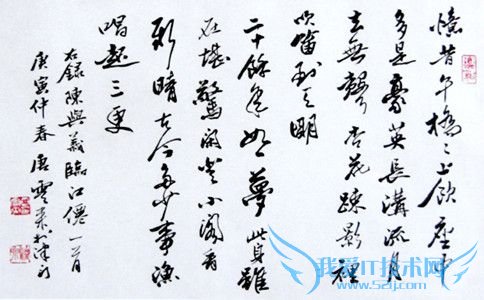 憶昔午橋〻上飲座中
多是豪英長溝流月
去無聲杏花疎影裡
吹笛到天明
二十餘年如一夢此身雖
在堪驚閑登小閣看
新晴古今多少事漁
唱起三更
右錄陳與義臨江僊一首
庚寅仲春唐雲來於津門
我爱IT技术网
www.52ij.com